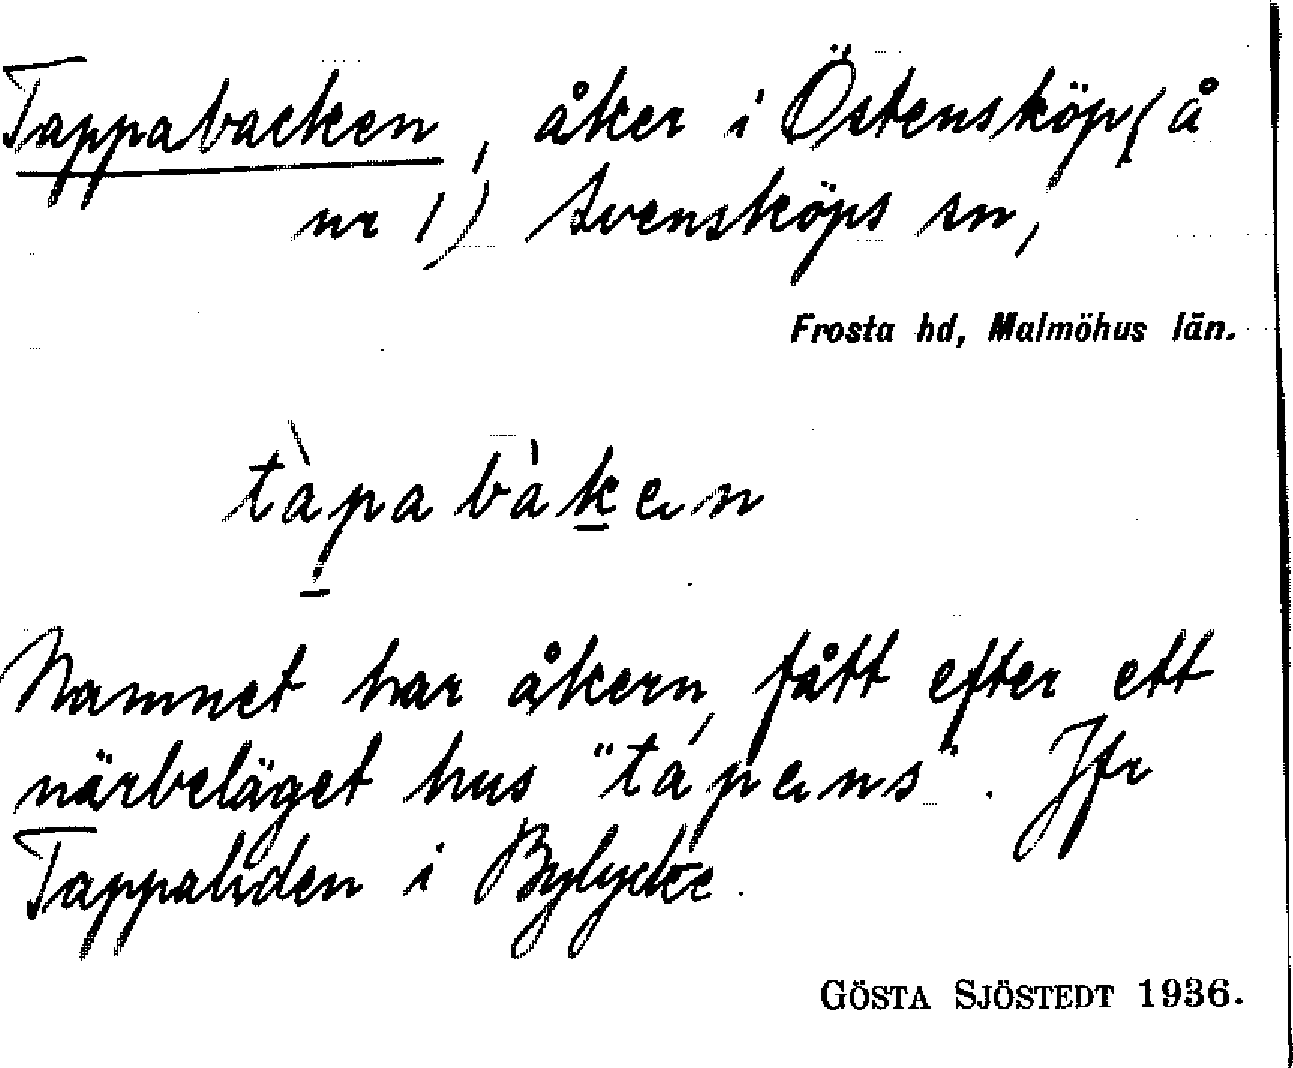 Tappabacken, åker i Östensköp (å
nr 1) Svensköps sn,
Frosta hd, Malmöhus län.
tàpabàken
Namnet har åkern fått efter ett
närbeläget hus "tápens". Jfr
Tappaliden i Bylycke.
GÖSTA SJÖSTEDT 1936.